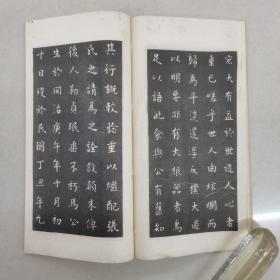 宏夫有益於世道人心者
重已嗟乎世人由絢爛而
歸為平淡返淳成樸大道
以明要非有大根器者焉
足以語此余與公有舊知
其行誼較稔重以繼配張
氏之請為之詮敘顛末俾
後人勒貞珉垂不朽焉公
生於同治庚午年十月初
十日歿於民國丁丑年九